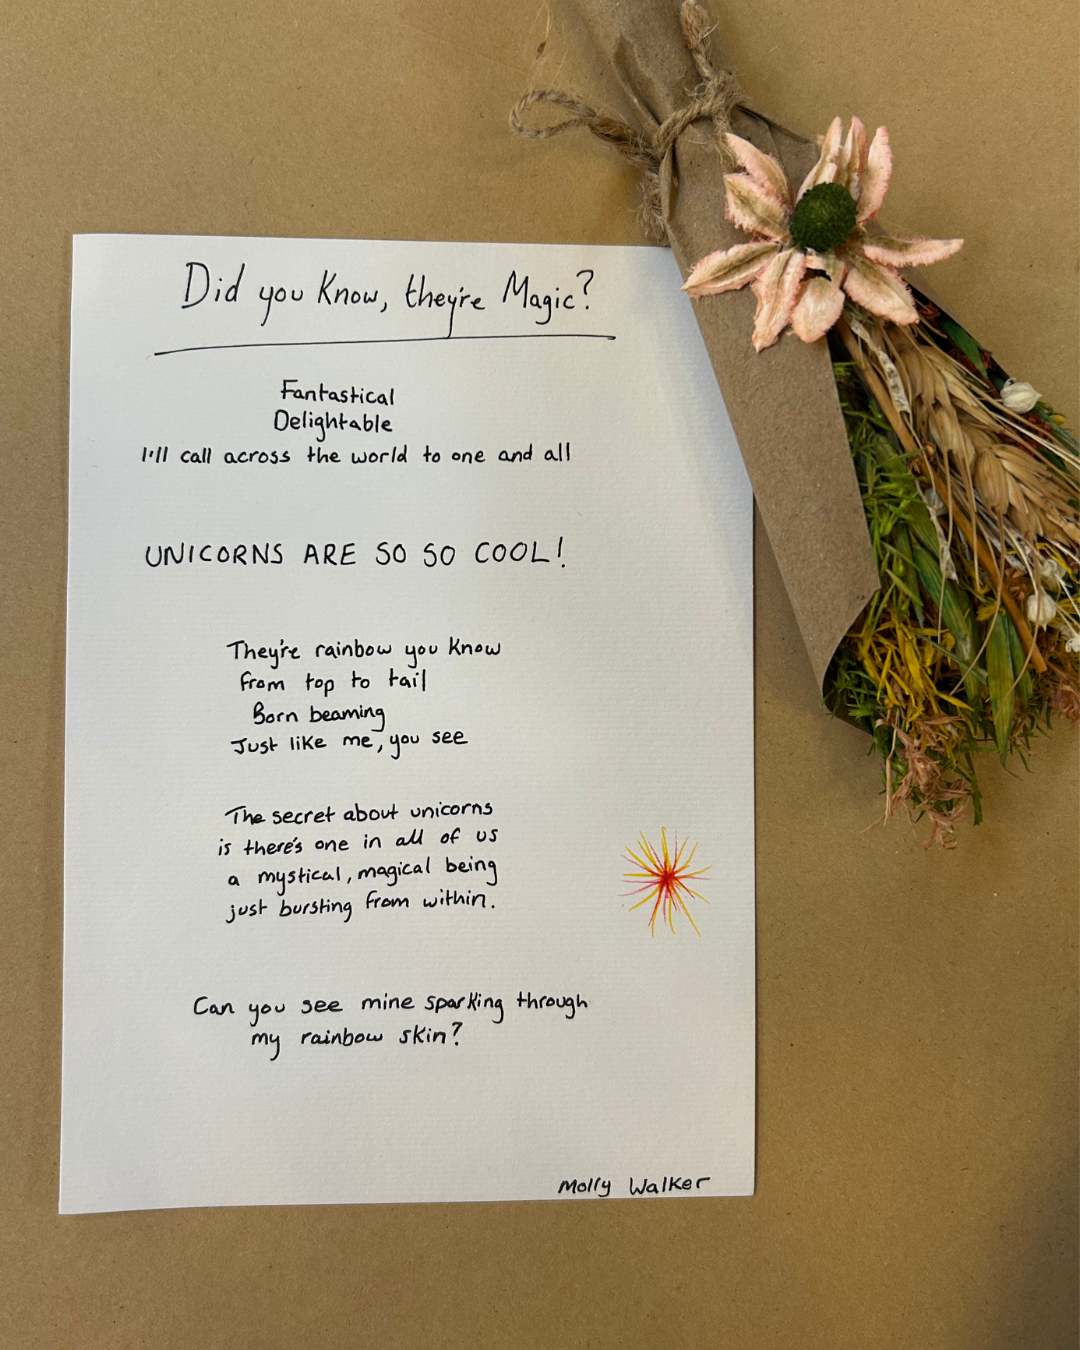 Did you know, they're Magic?
Fantastical
Delightable
I'll call across the world to one and all
UNICORNS ARE SO SO COOL!
They're rainbow you know
from top to tail
Born beaming
Just like me, you see
The secret about unicorns
is there's one in all of us
a mystical, magical being
just bursting from within.
Can you see mine sparking through
my rainbow skin?
Molly Walker